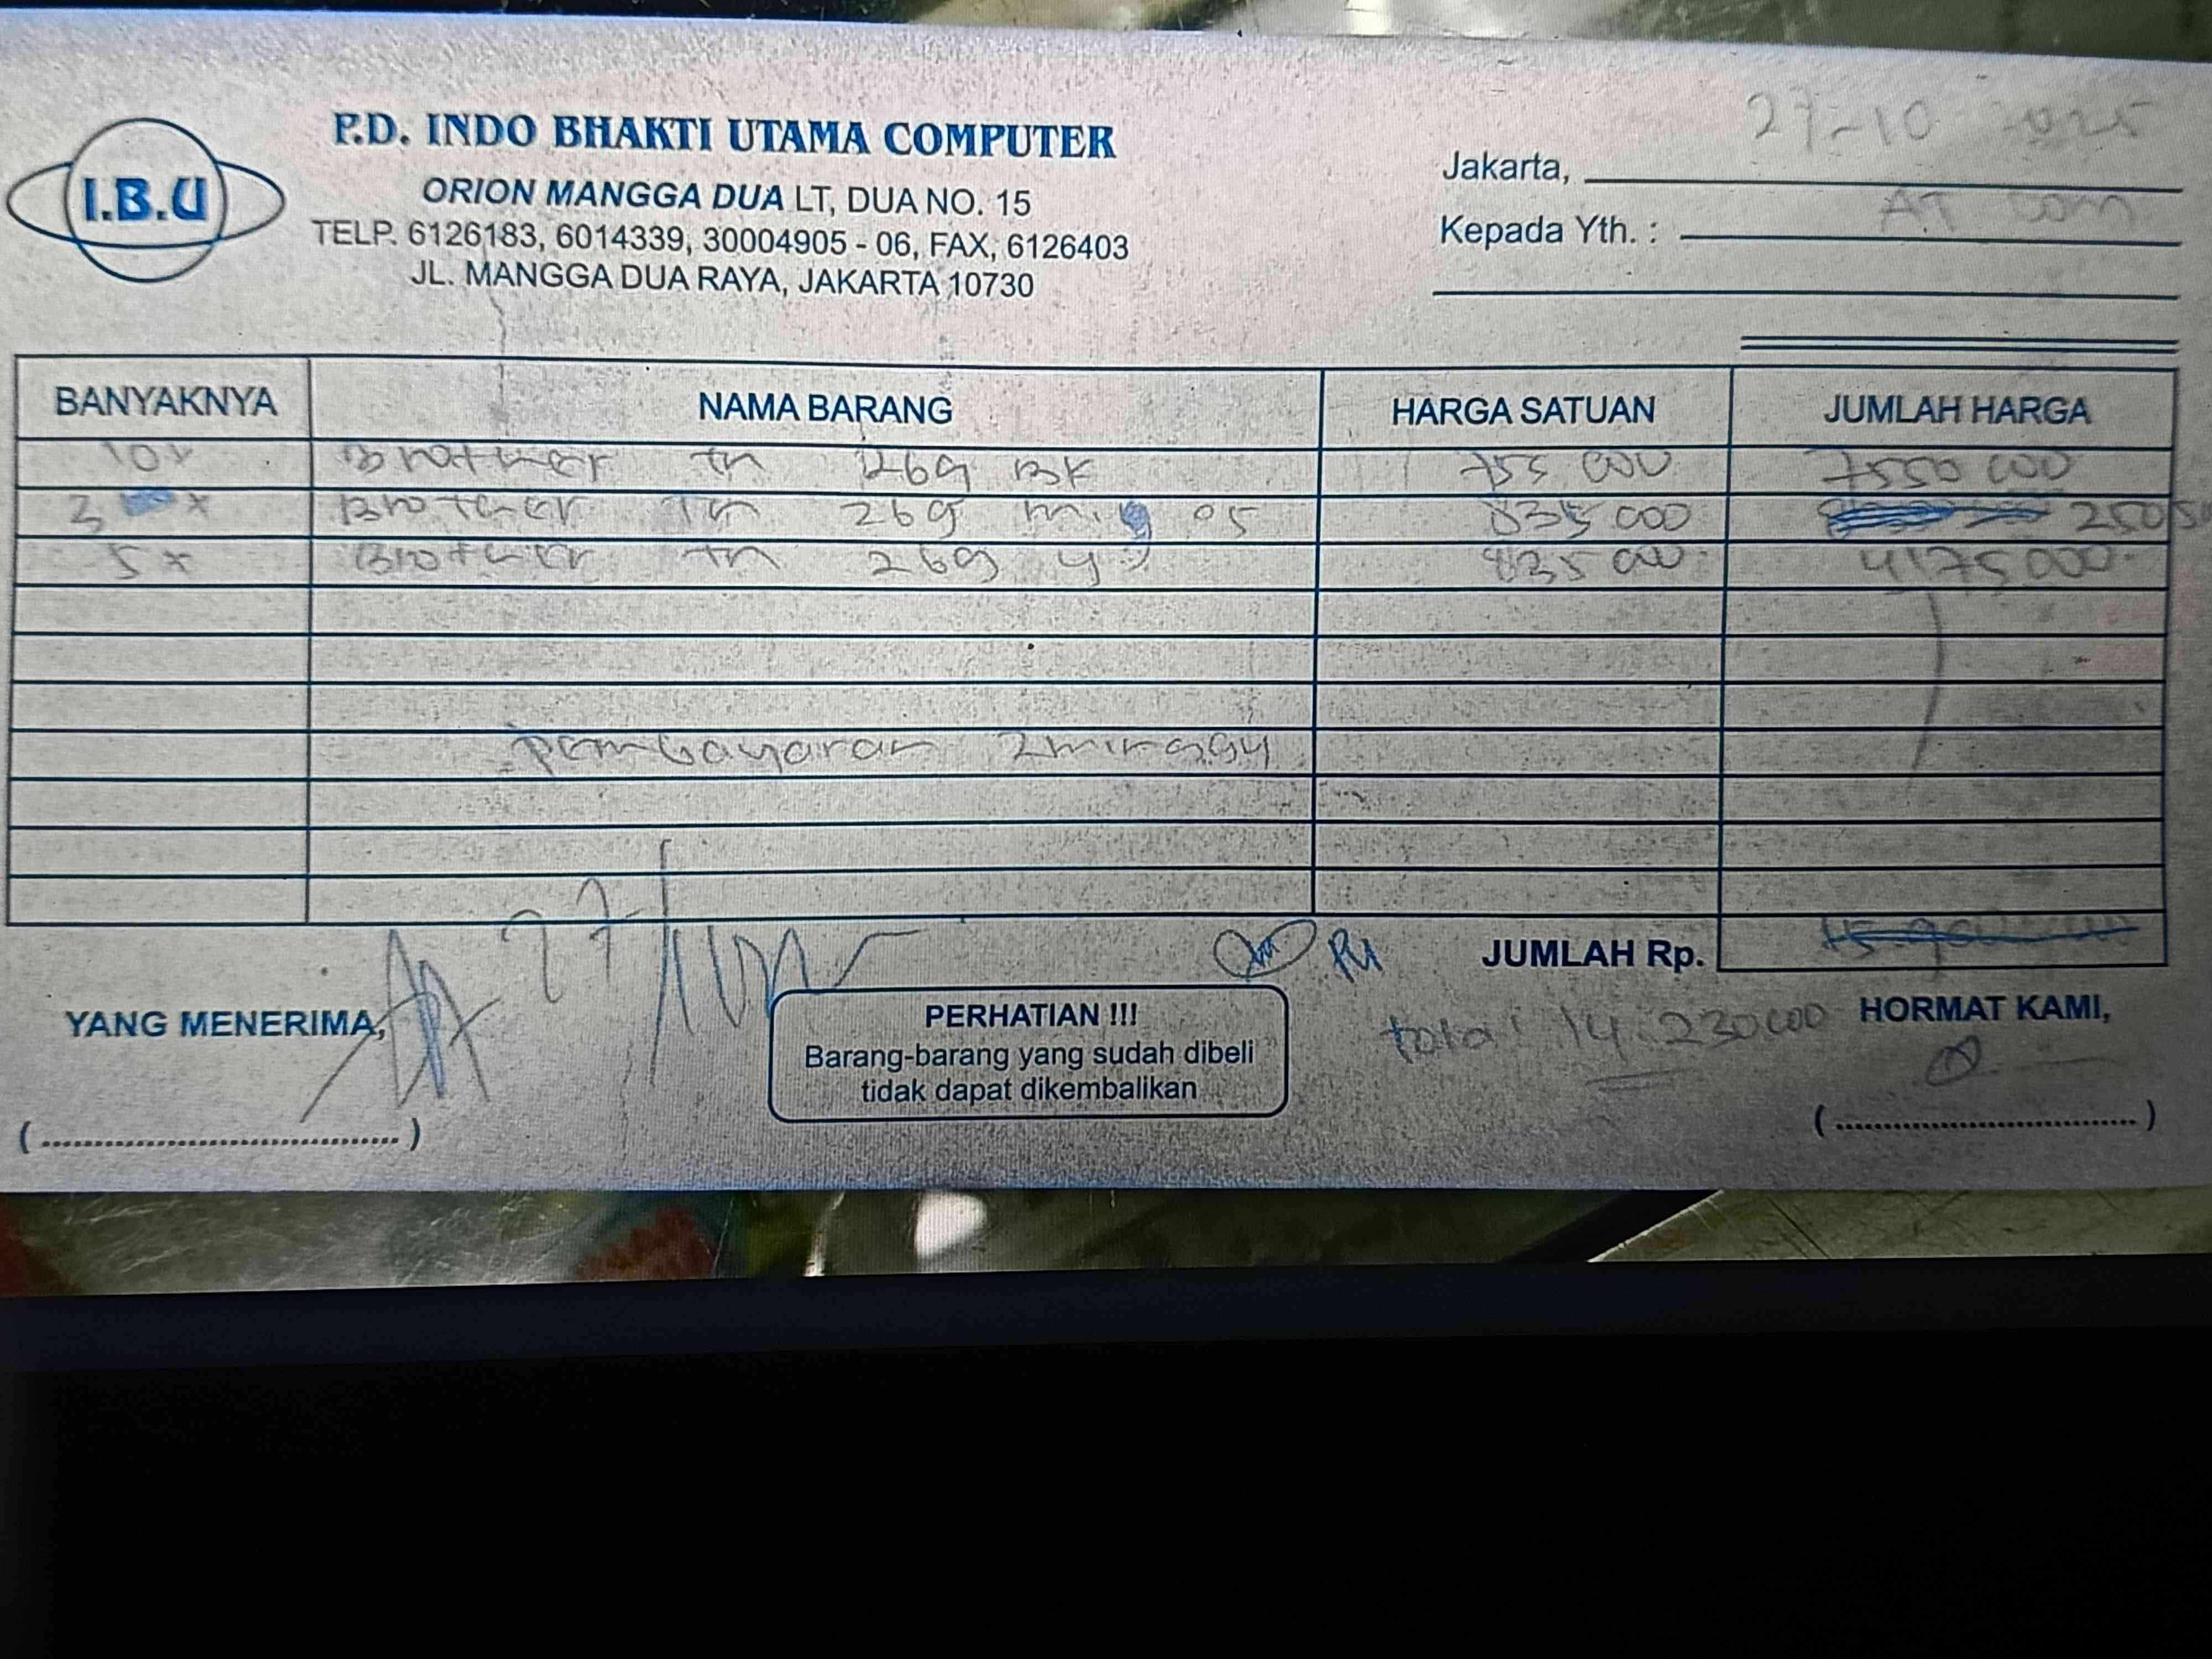 P.D. INDO BHAKTI UTAMA COMPUTER
I.B.U
ORION MANGGA DUA LT, DUA NO. 15
TELP. 6126183, 6014339, 30004905 - 06, FAX, 6126403
JL. MANGGA DUA RAYA, JAKARTA 10730
Jakarta, 27-10 2025
Kepada Yth. : AT com
BANYAKNYA NAMA BARANG HARGA SATUAN JUMLAH HARGA
10x Brother tn 269 BK 755 000 7550 000
3 x Brother Tn 269 835 000 2505
5 x Brother tn 269 y 835 000 4175 000
pembayaran 2 minggu
JUMLAH Rp.
total 14.230000
YANG MENERIMA,
PERHATIAN !!!
Barang-barang yang sudah dibeli
tidak dapat dikembalikan
HORMAT KAMI,